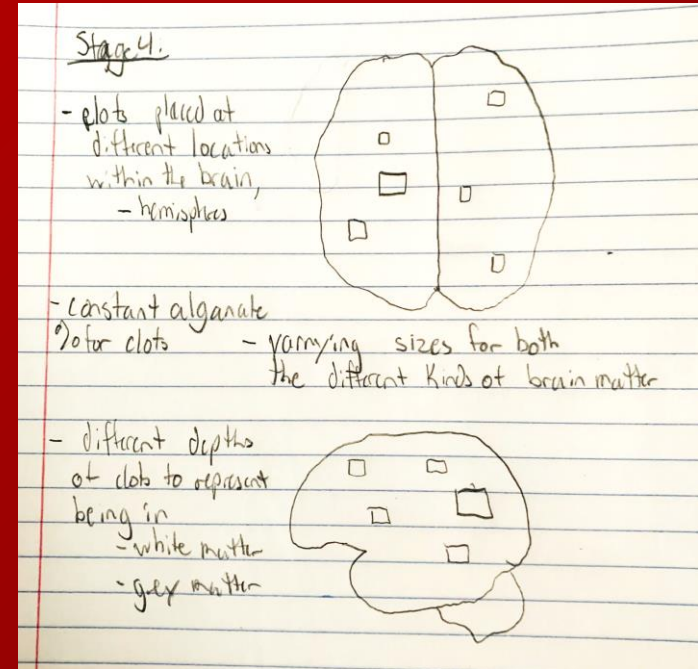 Stage 4:
- clots placed at
different locations
within the brain,
- hemispheres
- constant alganate
% for clots
- varrying sizes for both
the different kinds of brain matter
- different depths
of clots to represent
being in
- white matter
- grey matter